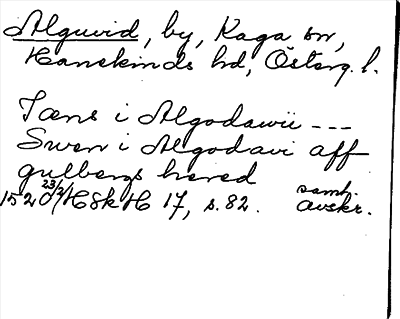 Alguvid, by, Kaga sn,
Hanekinds hd, Österg. l.
Jæns i Algodawii ---
Swen i Algodavi aff
gulbergs hered
1520 23/2 HSkH 17, s. 82. samt. avskr.